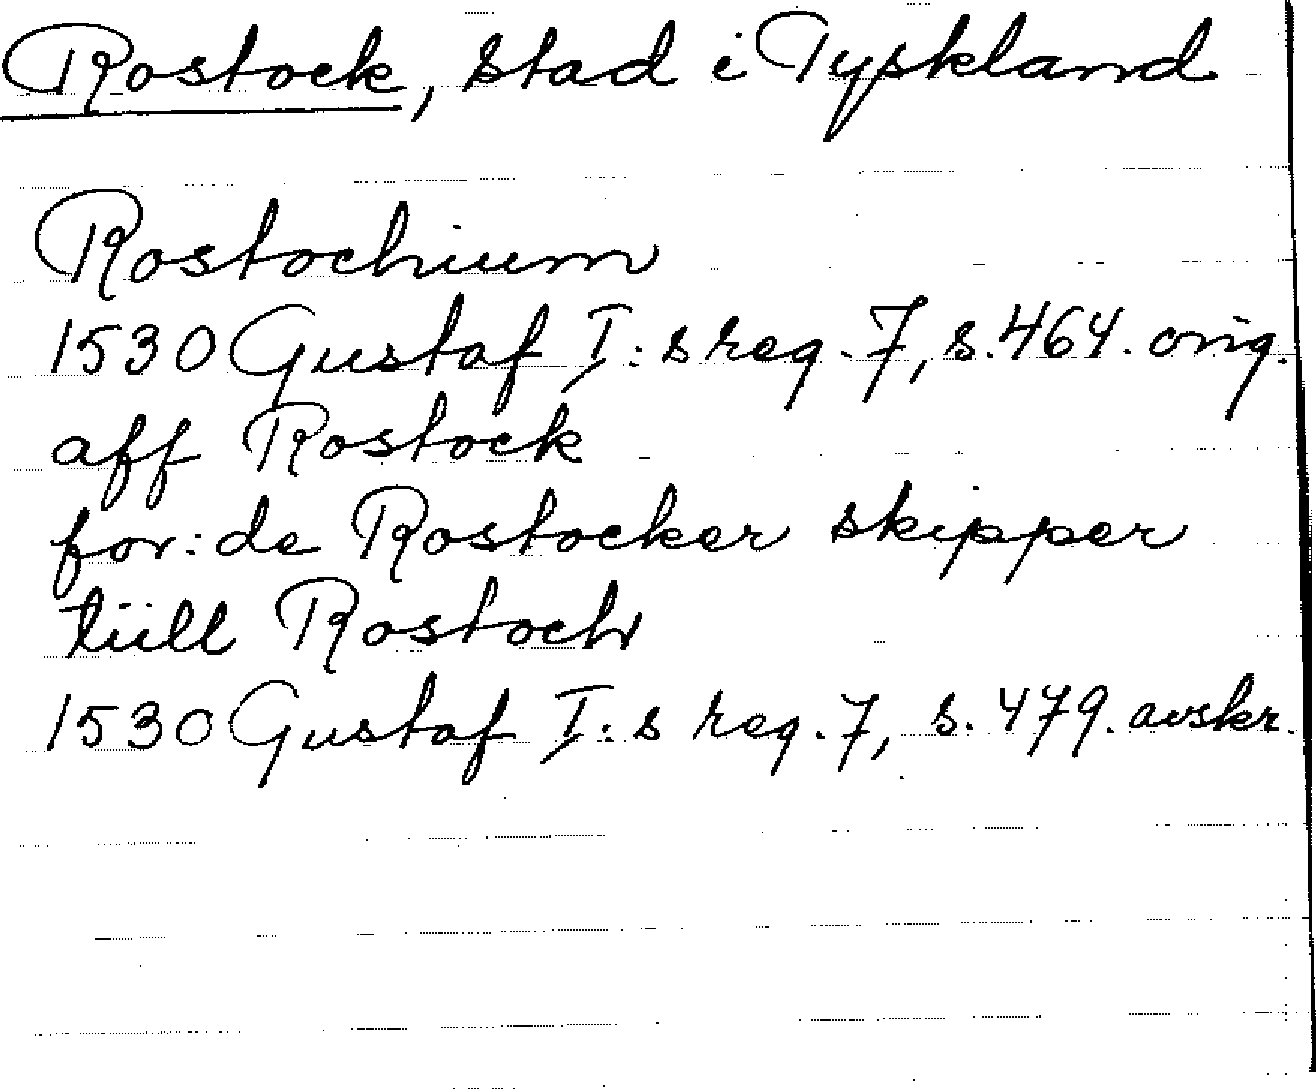 Rostock, stad i Tyskland
Rostochium
1530 Gustaf I:s reg. 7, s. 464. orig.
aff Rostock
for:de Rostocker skipper
tüll Rostoch
1530 Gustaf I:s reg. 7, s. 479. avskr.